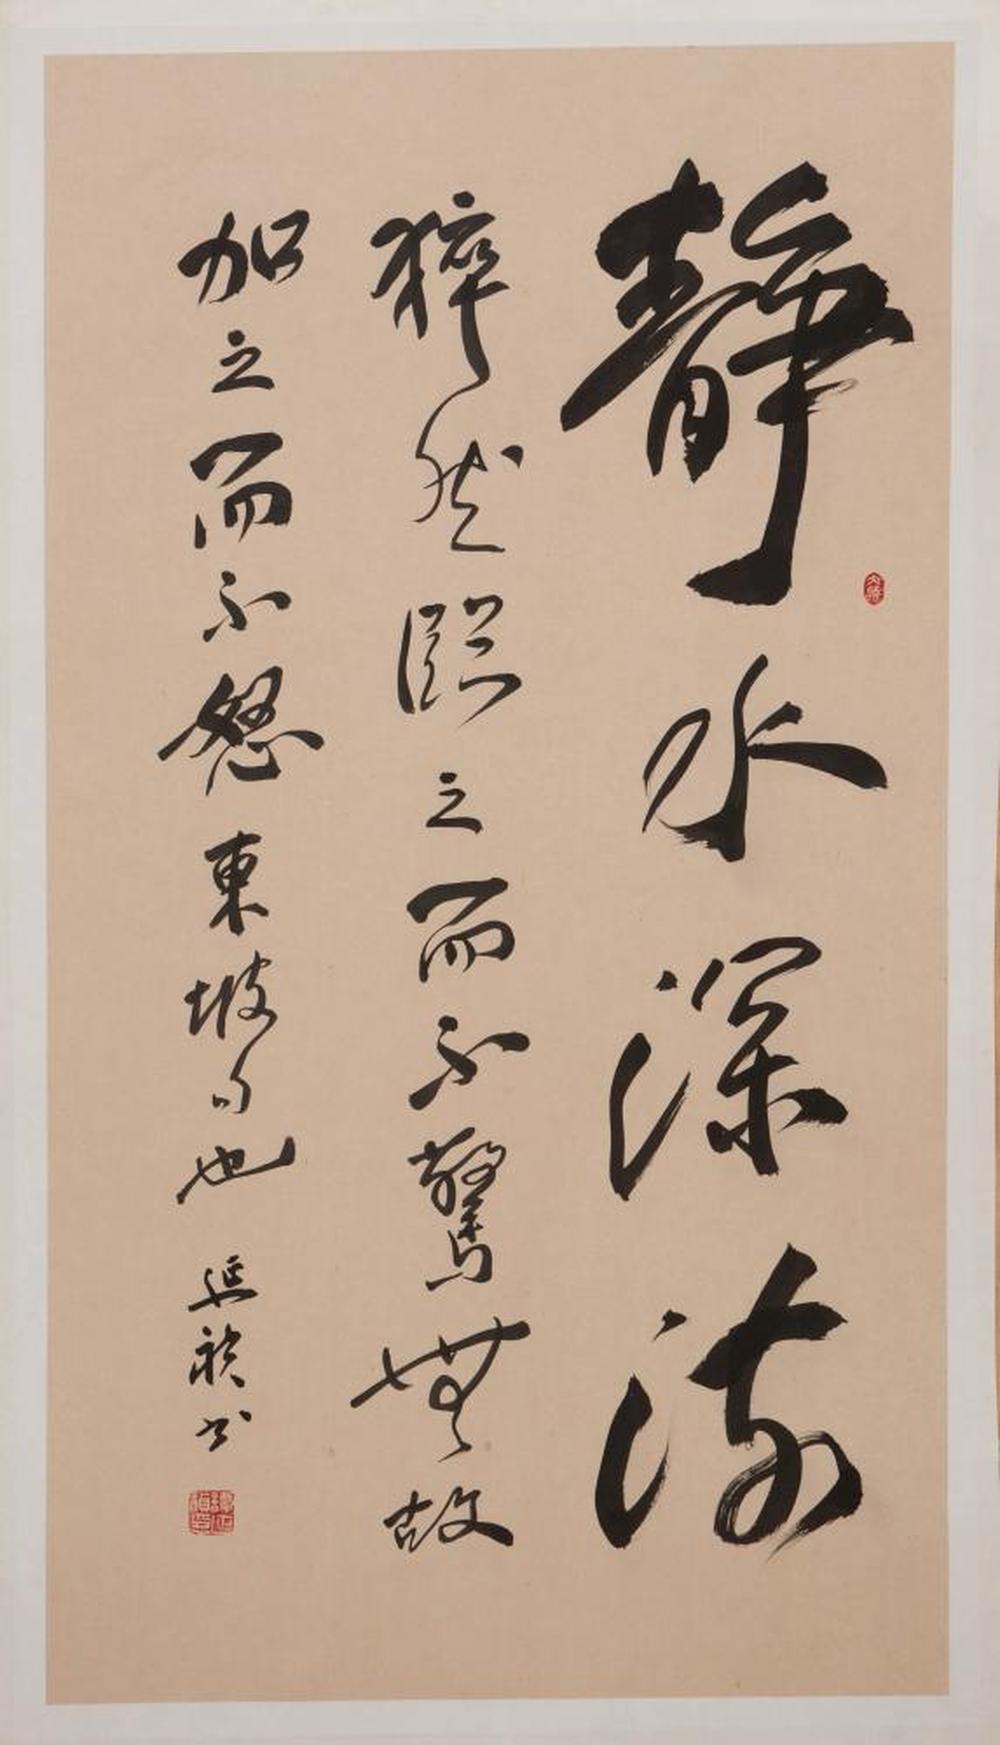 靜水深流
猝然臨之而不驚無故
加之而不怒東坡句也延禎書